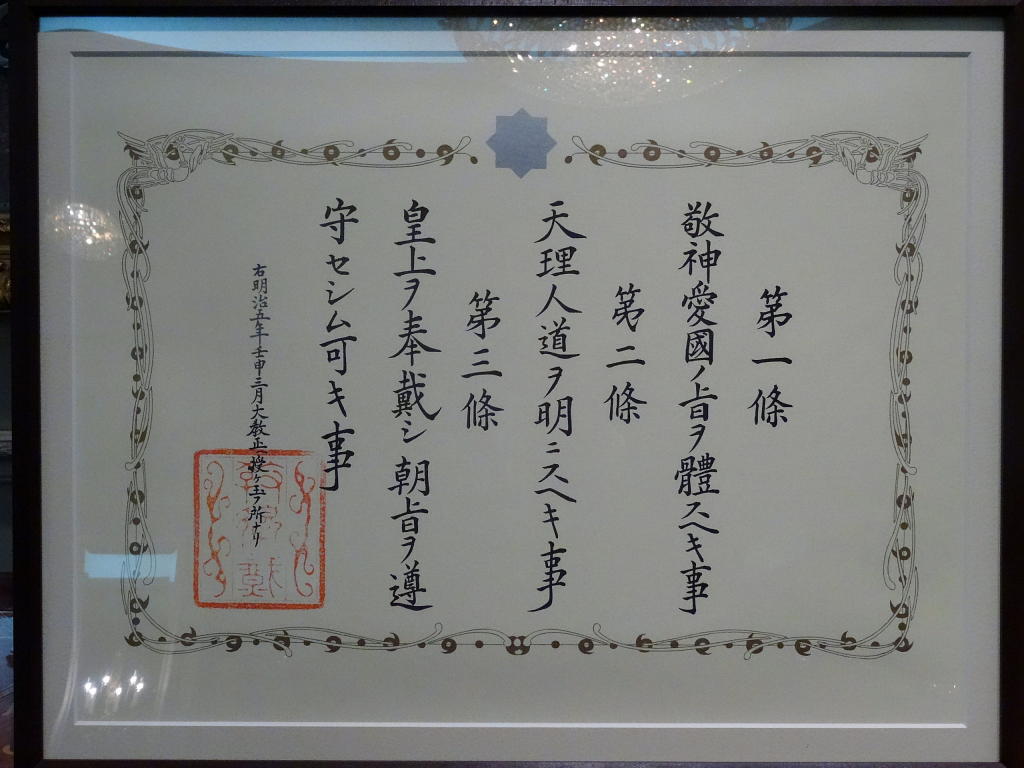 第一條
敬神愛國ノ旨ヲ體スヘキ事
第二條
天理人道ヲ明ニスヘキ事
第三條
皇上ヲ奉戴シ朝旨ヲ遵
守セシム可キ事
右明治五年壬申三月大教正授ケ玉フ所ナリ